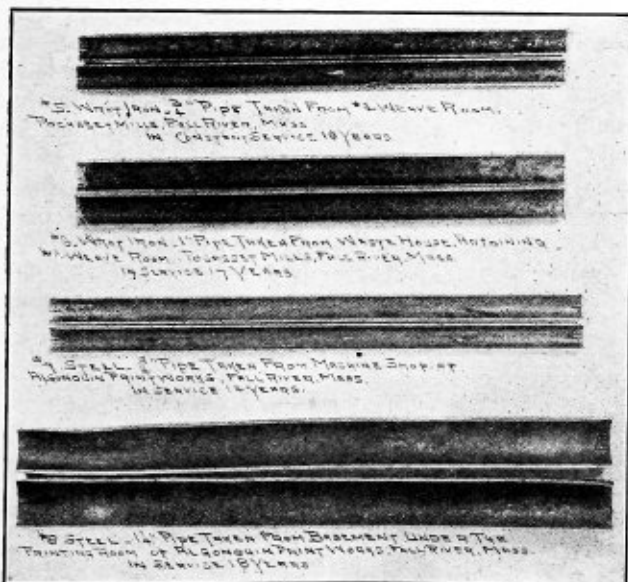 #5. WRO'T IRON. 3/4" PIPE TAKEN FROM #2 WEAVE ROOM.
POCASSET MILLS, FALL RIVER, MASS.
IN CONSTANT SERVICE 18 YEARS
WRO'T IRON. 1" PIPE TAKEN FROM WASTE HOUSE, ADJOINING
WEAVE ROOM. MILLS, FALL RIVER, MASS.
IN SERVICE 17 YEARS
STEEL. PIPE TAKEN FROM MACHINE SHOP AT
ALGONQUIN PRINT WORKS, FALL RIVER, MASS.
IN SERVICE 12 YEARS.
#8 STEEL. PIPE TAKEN FROM BASEMENT UNDER THE
PRINTING ROOM OF ALGONQUIN PRINT WORKS, FALL RIVER, MASS.
IN SERVICE 18 YEARS